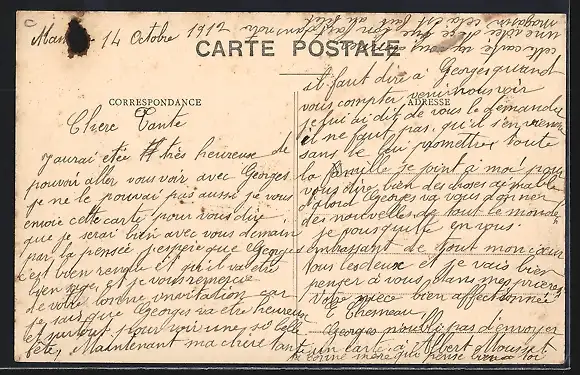 14 Octobre 1912
CARTE POSTALE
CORRESPONDANCE
ADRESSE
Chere Tante
J'aurai etée très heureuse de
pouvoir aller vous voir avec Georges
je ne le pouvai pas aussi je vous
envoie cette carte pour vous dire
que je serai bien avec vous demain
par la pensée j'espère que Georges
c'est bien rendue et qu'il va etre
bien sage, et je vous remercie
de votre bonne invitation car
je sais que Georges va etre heureux
et surtout pour voir une si belle
fête, Maintenant ma chere tante
il faut dire à Georges quand
vous compter venir nous voir
je lui ai dit de vous le demander
il ne faut pas qu'il s'en vienne
sans le lui promettre, toute
la famille se joint à moi pour
vous dire bien des choses aimable
d'abord Georges va vous donner
des nouvelles de tout le monde
je vous quitte en vous
embrassant de tout mon cœur
tous les deux et je vais bien
penser à vous dans mes prières
Votre nièce bien affectionnée
Georges n'oublie pas d'envoyer
un carte à Albert
mère qui pense bien à toi